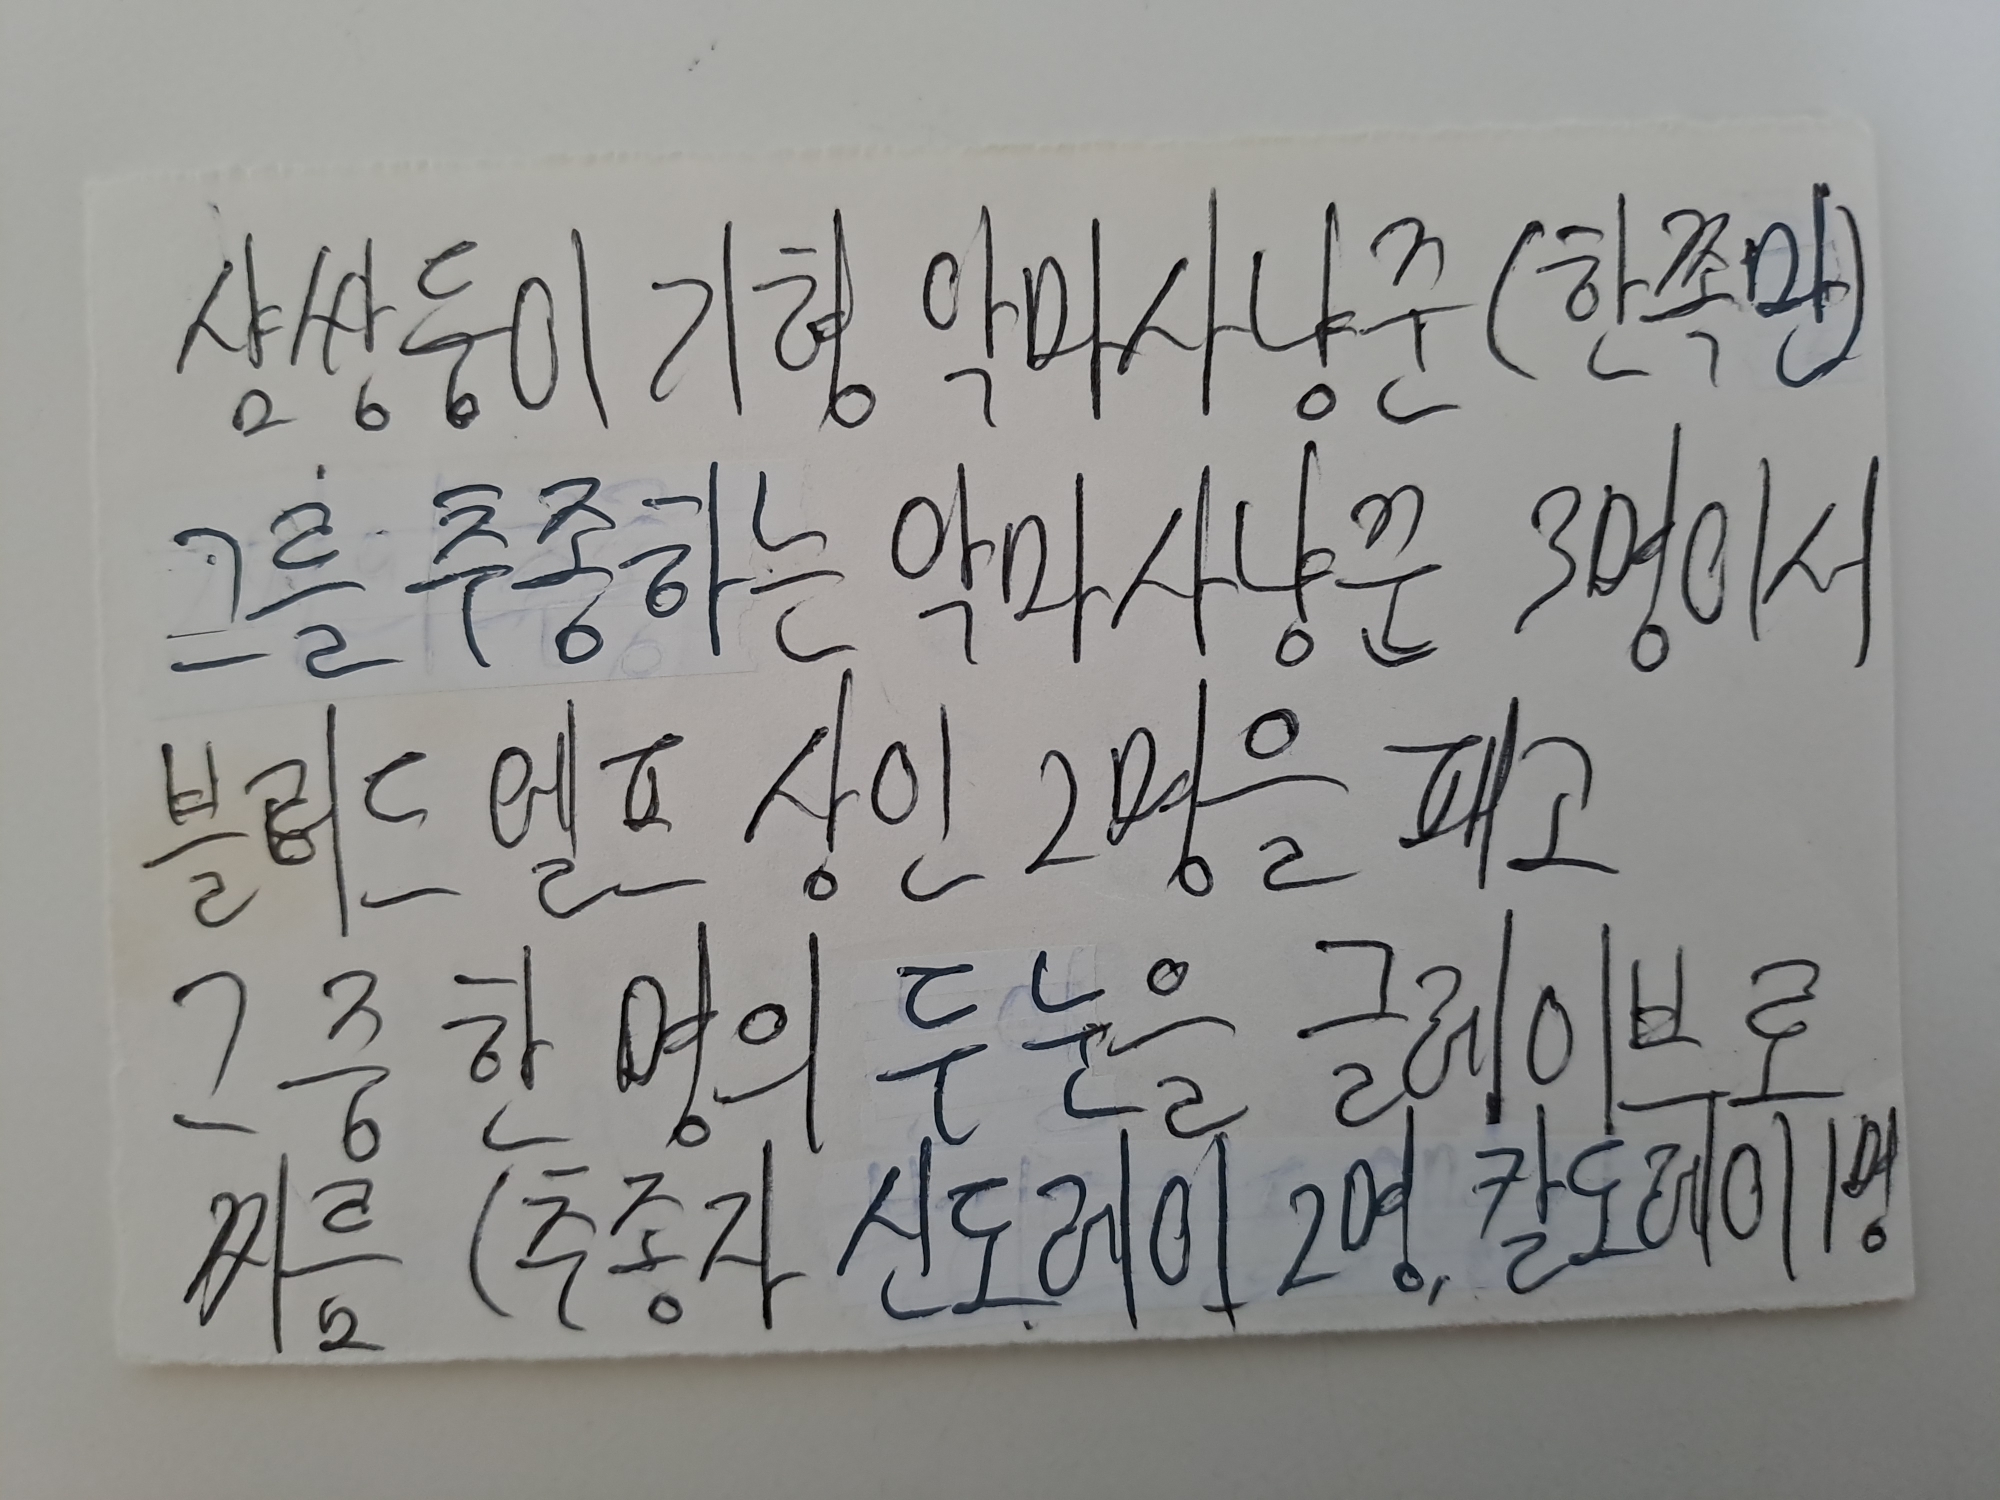 샴쌍둥이 기형 악마사냥꾼(한쪽만)
그를 추종하는 악마사냥꾼 3명이서
블러드 엘프 상인 2명을 패고
그 중 한 명의 두 눈을 글레이브로
찌름 (추종자 신도레이 2명, 칼도레이 1명